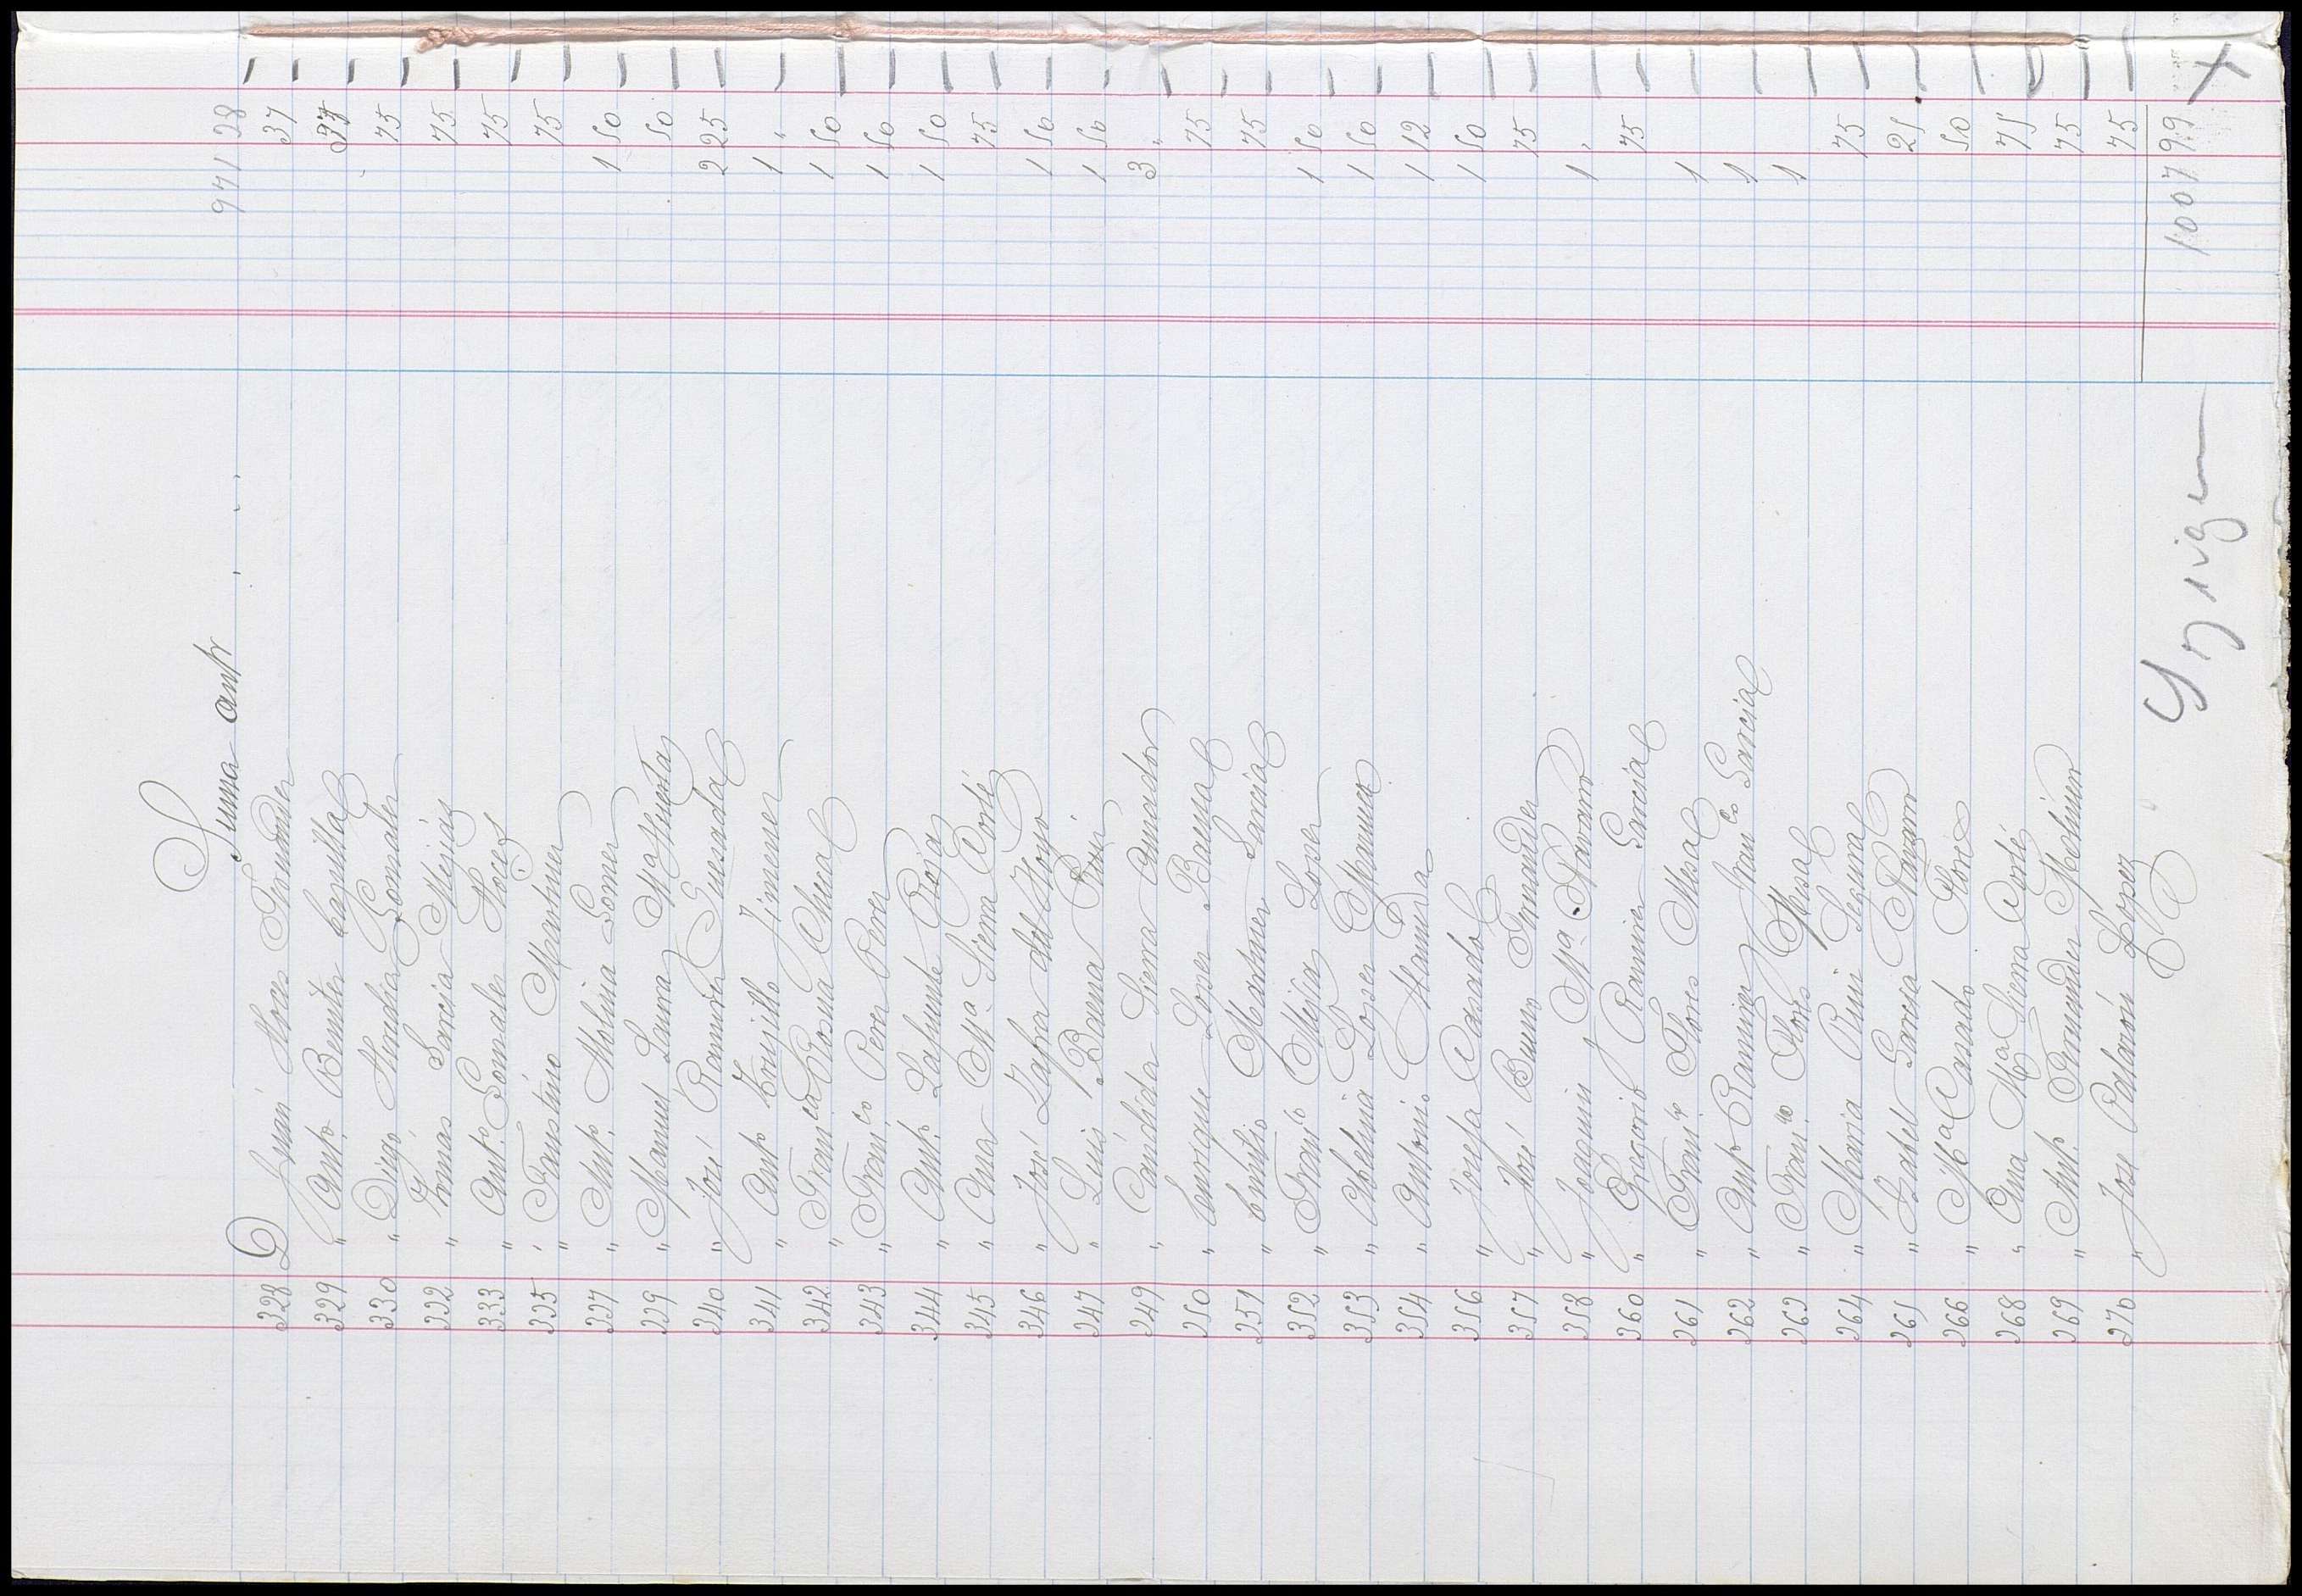 Suma antr . . . . 971 28
328 D Juan Hoces Fernandez 37
329 " Antº Benitez Capilla 37
330 " Diego Heredia Gonzalez 75
332 " Tomas Garcia Mejias 75
333 " Antº Gonzalez Hoces 75
335 " Faustino Martinez 75
337 " Antº Molina Gomez 1 50
339 " Manuel Laura Mª 50
340 " José Ramirez Quesada 2 25
341 " Antº Trujillo Jimenez 1 "
342 " Francª Rosua Chica 1 50
343 " Francº Perez Perez 1 50
344 " Antº Lafuente Rojas 1 50
345 " Ana Mª Sierra Corté 75
346 " José Zafra del Hoyo 1 50
347 " Luis Baena Ruiz 1 50
349 " Candida Sierra Amador 3 "
350 " Enrique Lopez Baena 75
351 " Emilio Martinez Garcia 75
352 " Francº Mejias Lopez 1 50
353 " Abelina Lopez 1 50
354 " Antonio Aranda 1 12
356 " Josefa Casado 1 50
357 " José Bueno Fernandez 75
358 " Joaquin Mª Navarro 1 "
360 " Gregorio Ramirez Garcia 75
361 " Francº Flores Mesa 1
362 " Antº Ramirez Francº Garcia 1
363 " Francº Flores Mesa 1
364 " Maria Ruiz Segura 75
365 " Isabel Garcia Navarro 25
366 " Mª Casado Flores 50
368 " Ana Mª Sierra Corté 75
369 " Antº Fernandez Molinero 75
370 " José Pastor Lopez 75
1007 99 X